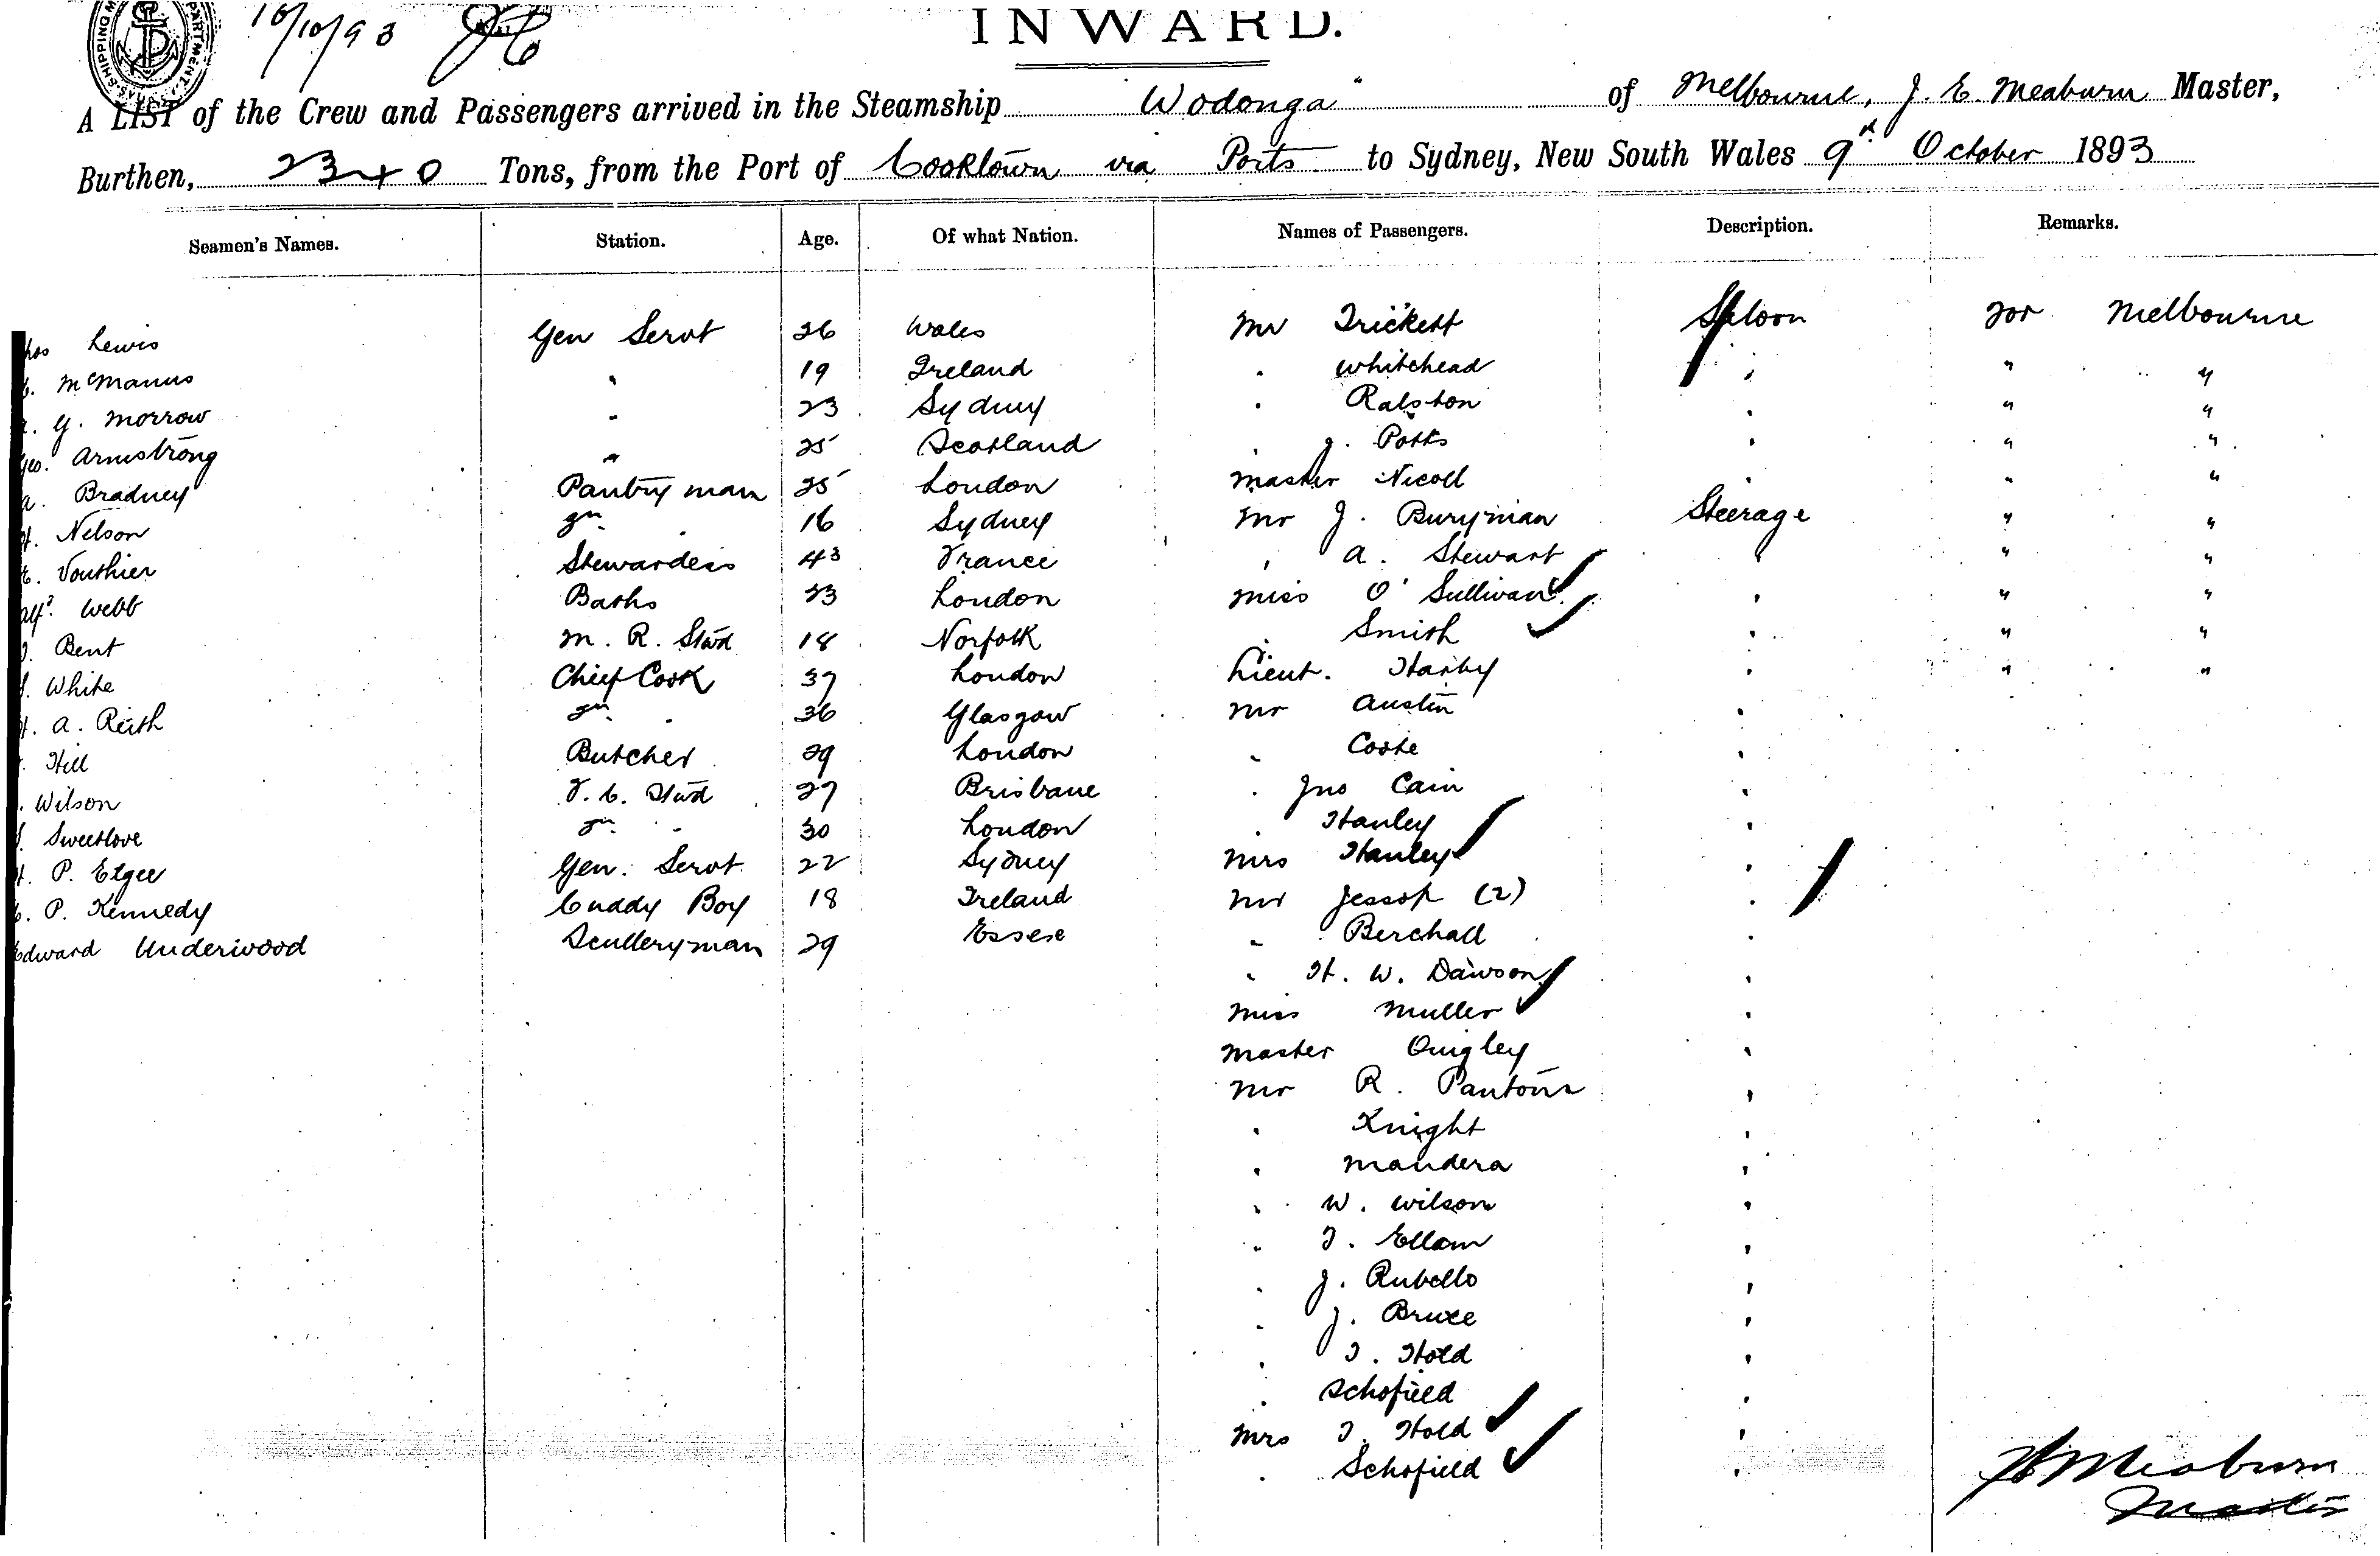 10/10/93
INWARD.
A LIST of the Crew and Passengers arrived in the Steamship "Wodonga" of Melbourne, J. E. Meaburn Master,
Burthen, 2340 Tons, from the Port of Cooktown via Ports to Sydney, New South Wales 9th October 1893
Seamen's Names. Station. Age. Of what Nation. Names of Passengers. Description. Remarks.
Lewis Gen Servt 26 Wales Mr Trickett Saloon For Melbourne
McManus " 19 Ireland " Whitehead " " "
G. Morrow " 23 Sydney " Ralston " " "
Geo. Armstrong " 25 Scotland " J. Potts " " "
A. Bradney Pantry man 25 London Master Nicoll " " "
H. Nelson 2nd " 16 Sydney Mr J. Buryman Steerage " "
E. Vouthier Stewardess 43 France " A. Stewart " " "
Alfd. Webb Baths 23 London Miss O'Sullivan " " "
Bent M. R. Stwd 18 Norfolk " Smith " " "
White Chief Cook 37 London Lieut. Hanby " " "
A. Reith 2nd " 36 Glasgow Mr Austin "
Hill Butcher 29 London " Cooke "
Wilson F. C. Stwd 27 Brisbane " Jno Cain "
Sweetlove 2nd " 30 London " Hanley "
H. P. Elgee Gen. Servt 22 Sydney Mrs Hanley "
P. Kennedy Cuddy Boy 18 Ireland Mr Jessop (2) "
Edward Underwood Sculleryman 29 Essex " Berchall "
" H. W. Dawson "
Miss Muller "
Master Quigley "
Mr R. Pantour "
" Knight "
" Mandera "
" W. Wilson "
" T. Ellam "
" J. Rubello "
" J. Bruce "
" T. Hold "
" Schofield "
Mrs T. Hold "
" Schofield "
Meaburn
Master